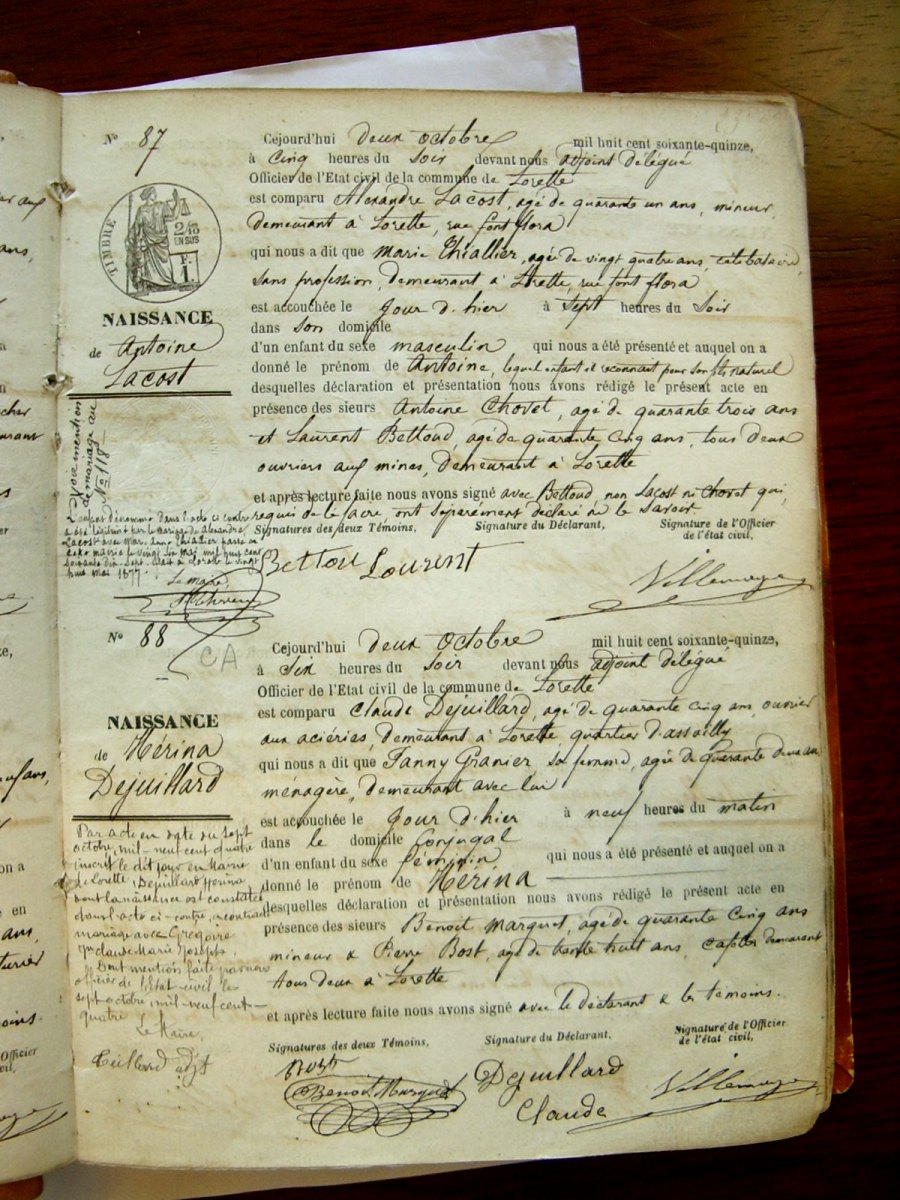 N° 87
TIMBRE
2/10 EN SUS
F. 1.
NAISSANCE
de Antoine
Lacost
Cejourd'hui deux octobre mil huit cent soixante-quinze,
à cinq heures du soir devant nous adjoint délégué
Officier de l'Etat civil de la commune de Lorette
est comparu Alexandre Lacost, agé de quarante un ans, mineur,
demeurant à Lorette, rue font flora
qui nous a dit que Marie Thiallier, agée de vingt quatre ans, célibataire,
sans profession, demeurant à Lorette, rue font flora
est accouchée le jour d'hier à sept heures du soir
dans son domicile
d'un enfant du sexe masculin qui nous a été présenté et auquel on a
donné le prénom de Antoine, lequel enfant il reconnait pour son fils naturel
desquelles déclaration et présentation nous avons rédigé le présent acte en
présence des sieurs Antoine Chovet, agé de quarante trois ans
et Laurent Bettoud, agé de quarante cinq ans, tous deux
ouviers aux mines, demeurant à Lorette
et après lecture faite nous avons signé avec Bettoud, non Lacost ni Chovet qui,
requis de le faire, ont séparement déclaré ne le savoir
Signatures des deux Témoins, Signature du Déclarant, Signature de l'Officier
de l'état civil,
Bettou Lourent
Villemagne
Voir mention
de mariage au
N° 118
L'enfant dénommé dans l'acte ci contre
a été légitimé par le mariage de Alexandre
Lacost avec Marie Thiallier passé en
cette mairie le vingt six mai mil huit cent
soixante dix-sept. Lorette le vingt
huit mai 1877.
Le maire
N° 88
CA
NAISSANCE
de Hérina
Dejuillard
Cejourd'hui deux octobre mil huit cent soixante-quinze,
à six heures du soir devant nous adjoint délégué
Officier de l'Etat civil de la commune de Lorette
est comparu Claude Dejuillard, agé de quarante cinq ans, ouvrier
aux aciéries, demeurant à Lorette quartier d'assailly
qui nous a dit que Fanny Granier, sa femme, agée de quarante deux ans
ménagère, demeurant avec lui
est accouchée le jour d'hier à neuf heures du matin
dans le domicile conjugal
d'un enfant du sexe féminin qui nous a été présenté et auquel on a
donné le prénom de Hérina
desquelles déclaration et présentation nous avons rédigé le présent acte en
présence des sieurs Benoit Marquet, agé de quarante cinq ans
mineur & Pierre Bost, agé de trente huit ans, demeurant
tous deux à Lorette
et après lecture faite nous avons signé avec le déclarant & les témoins.
Signatures des deux Témoins, Signature du Déclarant, Signature de l'Officier
de l'état civil,
Bost
Benoit Marquet
Dejuillard
Claude
Villemagne
Par acte en date du sept
octobre, mil-neuf cent quatre
inscrit le dit jour en Mairie
de Lorette, Dejuillard Hérina
dont la naissance est constatée
dans l'acte ci-contre, a contracté
mariage avec Grégoire
Claude Marie Joseph,
Dont mention faite par nous
officier de l'état-civil le
sept octobre, mil-neuf cent-
quatre
Le Maire,
Teillard adjt